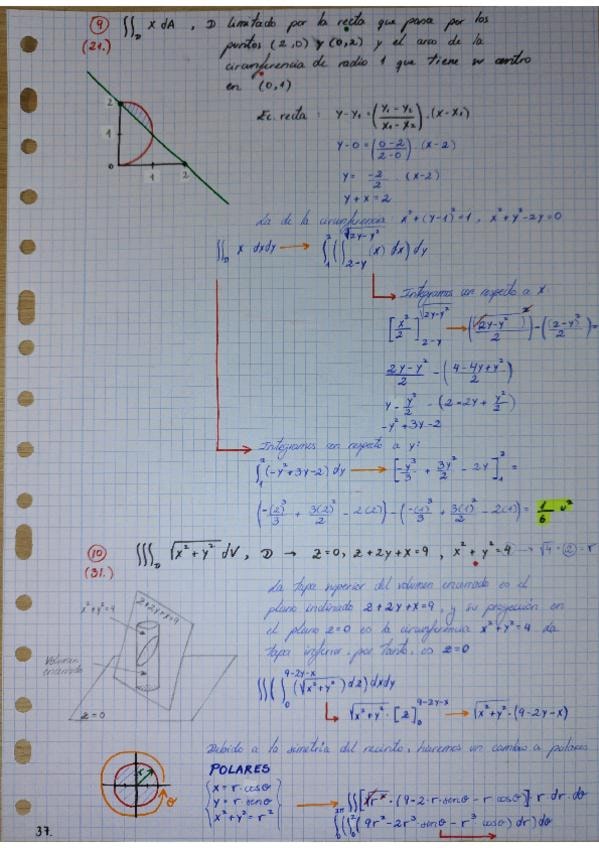 9 ∬_D x dA , D limitado por la recta que pasa por los
(21.) puntos (2,0) y (0,2) y el arco de la
circunferencia de radio 1 que tiene su centro
en (0,1)
2
1
1 2
Ec. recta: y-y₁ = (y₁-y₂ / x₁-x₂) · (x-x₁)
y-0 = (0-2 / 2-0) · (x-2)
y = -2/2 · (x-2)
y+x=2
La de la circunferencia x²+(y-1)²=1, x²+y²-2y=0
∬_D x dxdy → ∫₁² (∫_{2-y}^{√(2y-y²)} (x) dx) dy
Integramos con respecto a x:
[x²/2]_{2-y}^{√(2y-y²)} → ((√(2y-y²))²/2) - ((2-y)²/2) =
(2y-y²)/2 - ((4-4y+y²)/2)
y - y²/2 - (2-2y+y²/2)
-y²+3y-2
Integramos con respecto a y:
∫₁² (-y²+3y-2) dy → [-y³/3 + 3y²/2 - 2y]₁² =
(-(2)³/3 + 3(2)²/2 - 2(2)) - (-(1)³/3 + 3(1)²/2 - 2(1)) = 1/6 u²
10 ∭_D √(x²+y²) dV, D → z=0, z+2y+x=9, x²+y²=4 → √4=2=r
(31.)
La tapa superior del volumen encerrado es el
plano inclinado z+2y+x=9, y su proyección en
el plano z=0 es la circunferencia x²+y²=4. La
tapa inferior, por tanto, es z=0
x²+y²=4
z+2y+x=9
Volumen
encerrado
z=0
∬(∫₀^{9-2y-x} (√(x²+y²)) dz) dxdy
√(x²+y²) · [z]₀^{9-2y-x} → √(x²+y²) · (9-2y-x)
Debido a la simetría del recinto, haremos un cambio a polares
POLARES
x = r·cosθ
y = r·senθ
x²+y²=r²
r
θ
→ ∬[√r² · (9-2·r·senθ - r cosθ)] · r · dr · dθ
∫₀^{2π}(∫₀²(9r²-2r³·senθ - r³ cosθ) dr) dθ
37.